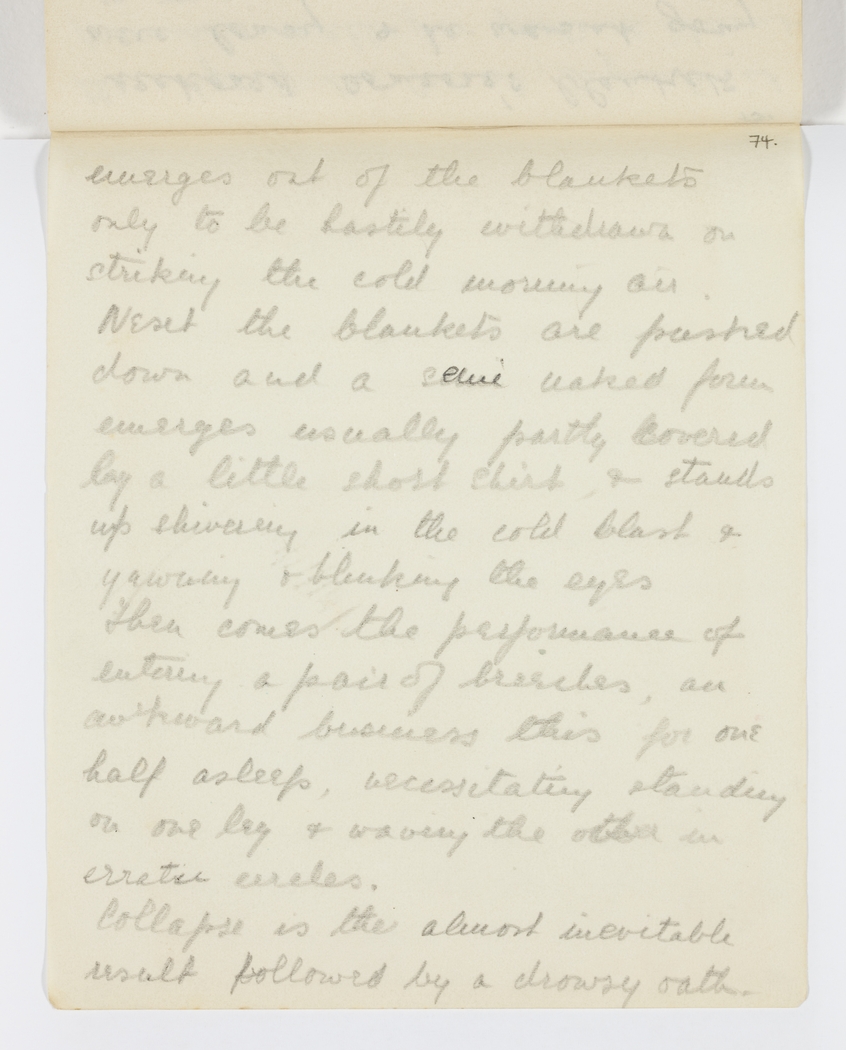 74.
emerges out of the blankets
only to be hastily withdrawn on
striking the cold morning air.
Next the blankets are pushed
down and a semi naked form
emerges usually partly covered
by a little short shirt, & stands
up shivering in the cold blast &
yawning & blinking the eyes
Then comes the performance of
entering a pair of breeches, an
awkward business this for one
half asleep, necessitating standing
on one leg & waving the other in
erratic circles.
Collapse is the almost inevitable
result followed by a drowsy oath.